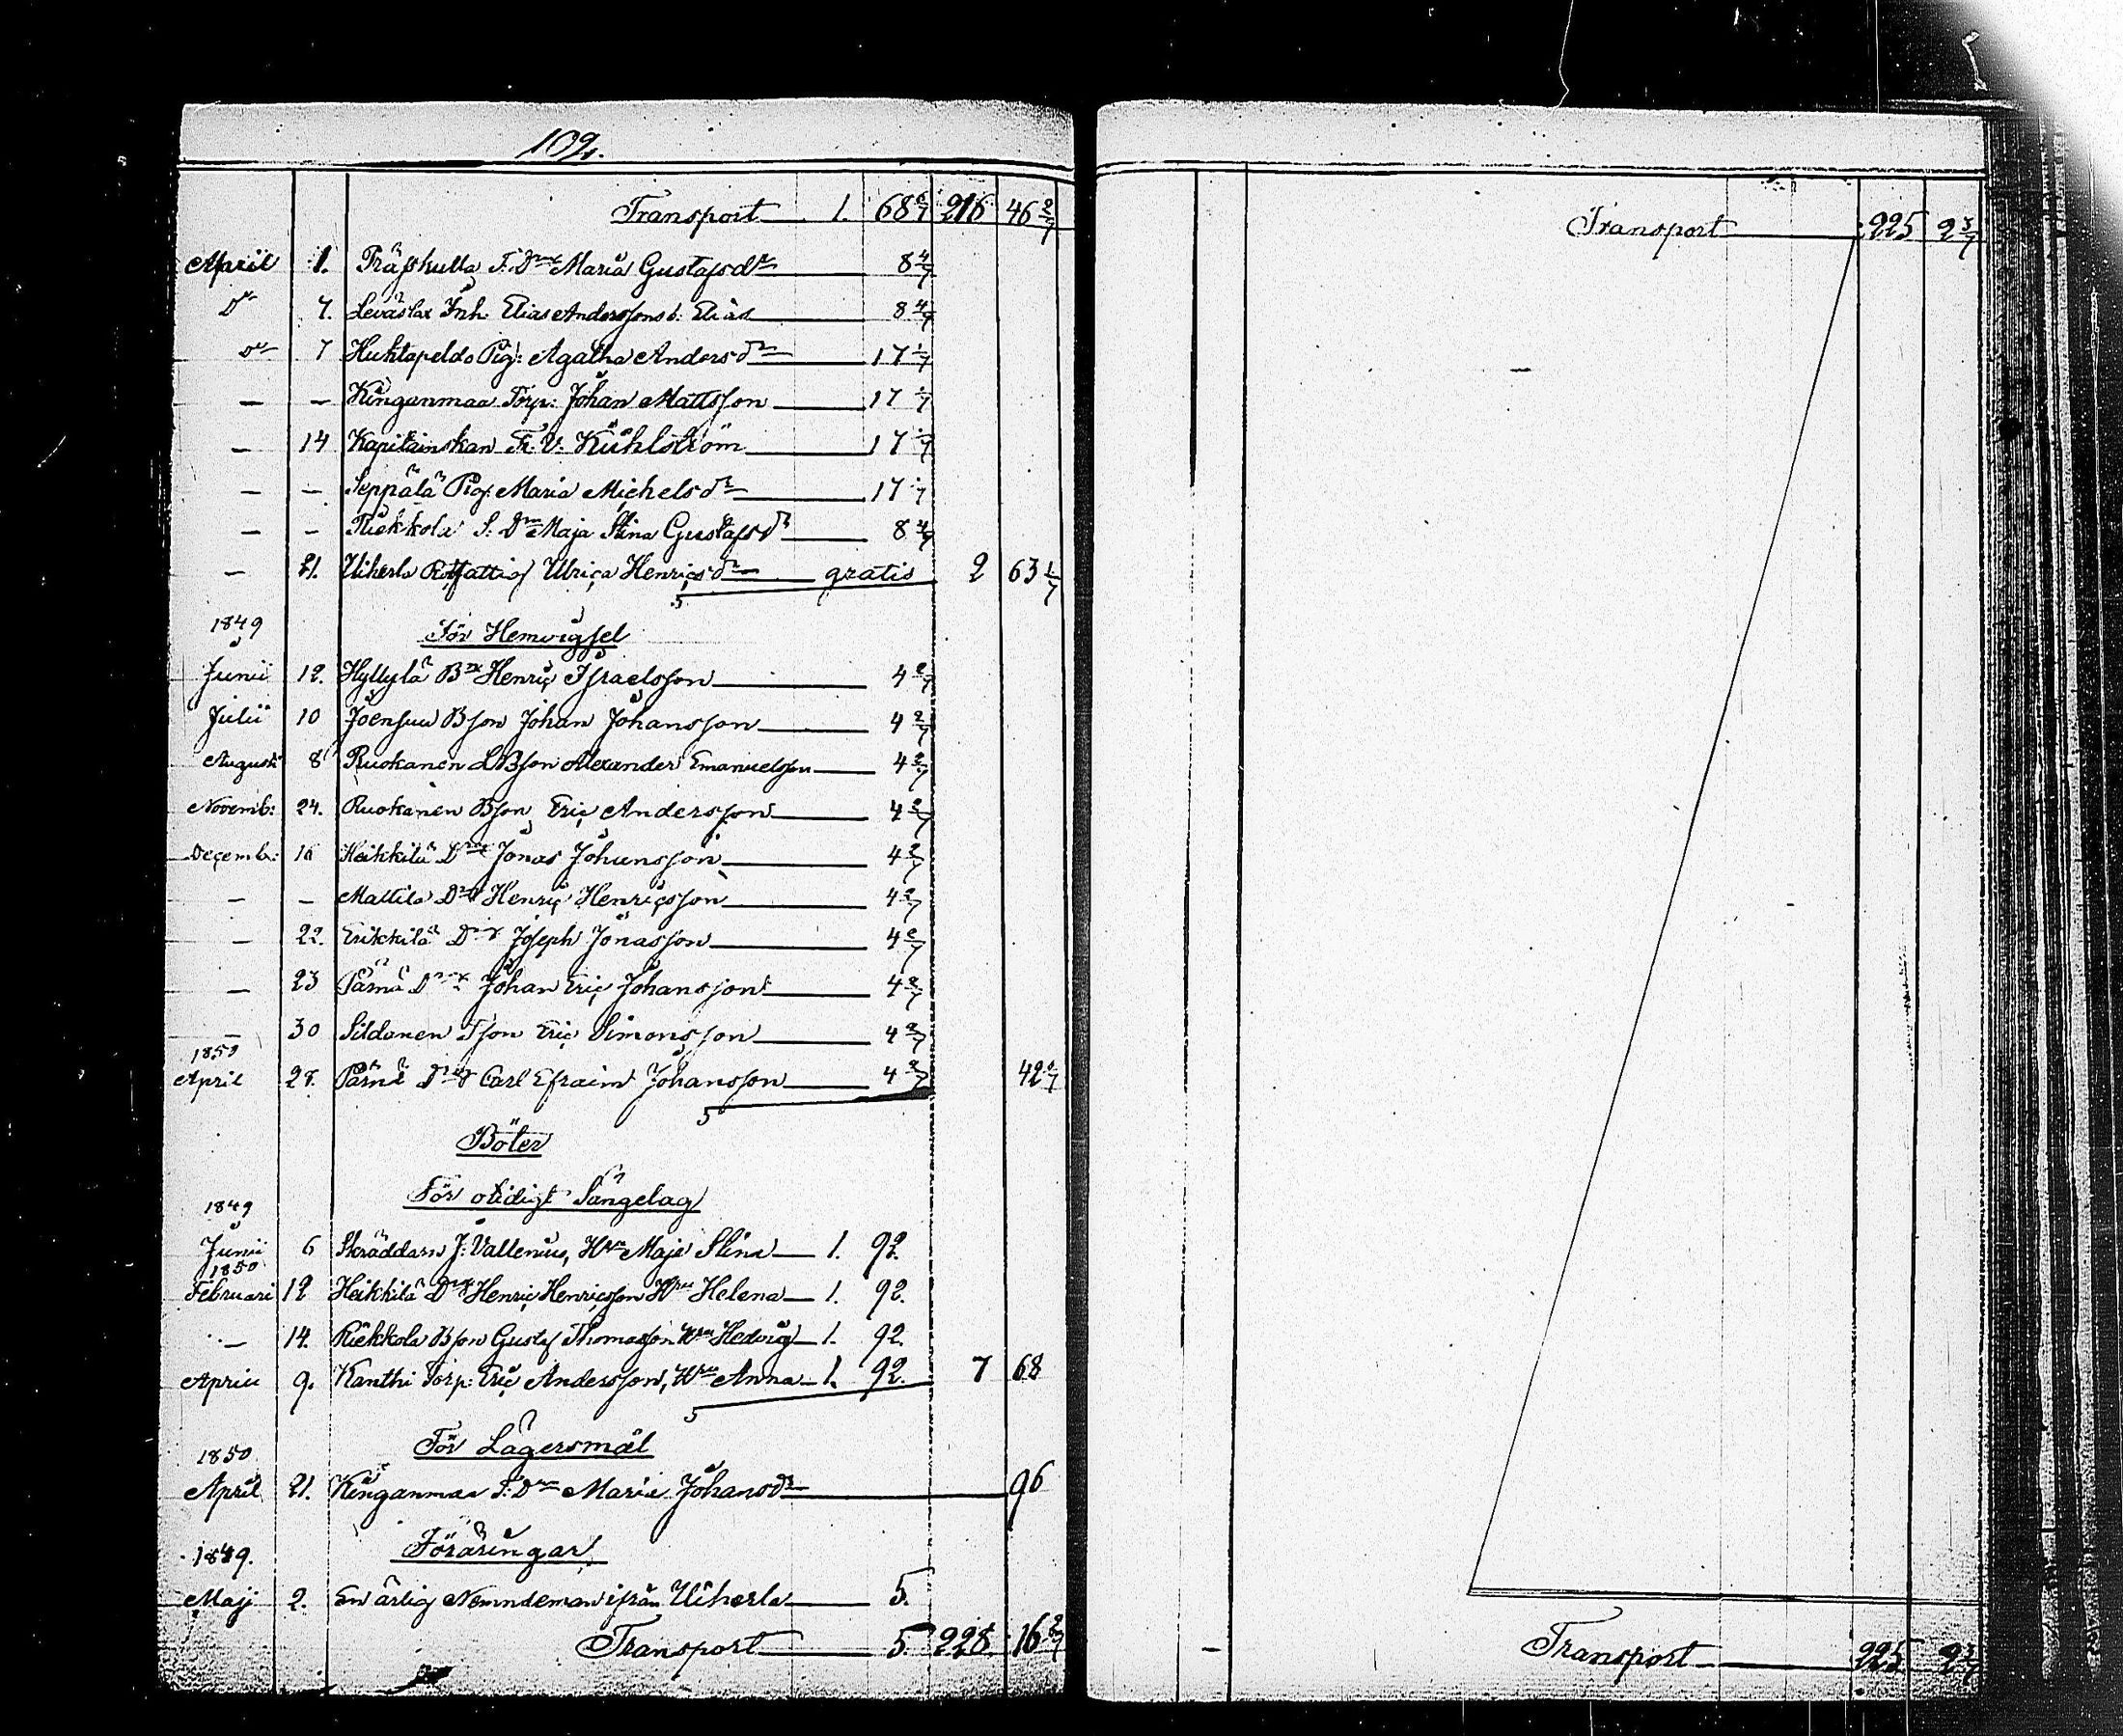 109.
Transport 1. 68 6/7 216 46 2/7
April 1. Träsktulla T. Dr Maria Gustafsdr 8 4/7
Dr 7. Leväslax Inh. Elias Anderssons b. Elias 8 4/7
Dr 7 Huhtapeldo Pig: Agatha Andersdr 17 1/7
— — Kinganmaa Torp: Johan Mattsson 17 1/7
— 14 Kapitainskan Fr. V. Kühlström 17 1/7
— — Seppälä Pig: Maria Michelsdr 17 1/7
— — Riekkola S: Dr Maja Stina Gustafsdr 8 4/7
— 21. Uiherla Ulrica Henricsdr gratis 2 63 1/7
1849 För Hemvigsel
Junii 12. Hyllylä Bn Henric Israelsson 4 2/7
Julii 10 Joensuu Bson Johan Johansson 4 2/7
Augusti 8 Ruokanen LBson Alexander Emanuelsson 4 2/7
Novemb: 24. Ruokanen Bson Eric Andersson 4 2/7
Decemb: 16 Heikkilä Dr Jonas Johansson 4 2/7
— — Mattila Dr Henric Henricsson 4 2/7
— 22. Erikkilä Dr Joseph Jonasson 4 2/7
— 23 Pärnä Dr Johan Eric Johansson 4 2/7
— 30 Sildanen Tson Eric Simonsson 4 2/7
1850
April 28. Pärnä Dr Carl Efraim Johansson 4 2/7 42 6/7
Böter
1849 För otidigt Sängelag
Junii 6 Skräddarn J: Vallenius, Hru Maja Stina 1. 92.
1850
Februari 12 Heikkilä Dr Henric Henricsson Hru Helena 1. 92.
— 14. Riekkola Bson Gustaf Thomasson Hru Hedvig 1. 92.
Aprill 9. Kanthi Torp: Eric Andersson, Hru Anna 1. 92. 7 68
1850. För Lägersmål
April 21. Kinganmaa T: Dr Maria Johansdr 96
1849. Föräringar
Maji 2. En ärlig Nemndeman ifrån Uiherla 5.
Transport 5. 228. 16 2/7
Transport 225 2 3/7
Transport 225 2 3/7